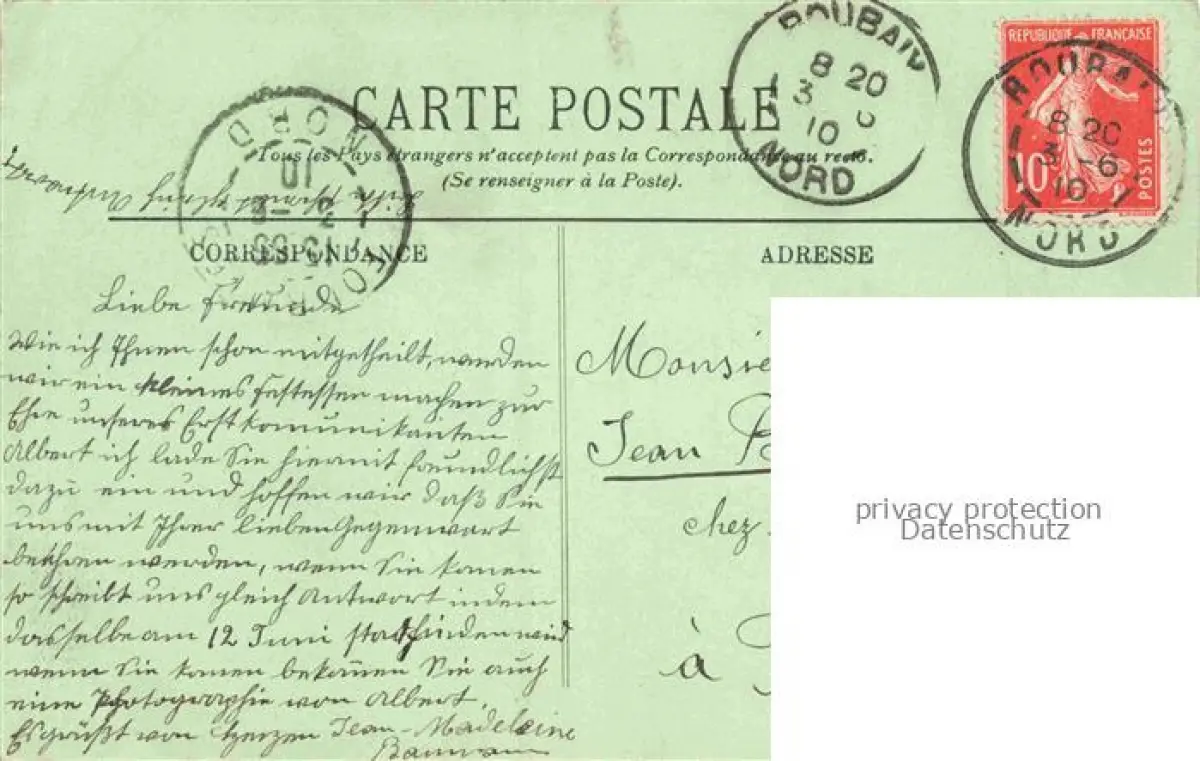 CARTE POSTALE
Tous les Pays étrangers n'acceptent pas la Correspondance au recto.
(Se renseigner à la Poste).
CORRESPONDANCE
Liebe Freunde
Wie ich Ihnen schon mitgetheilt, werden
wir ein kleines Festessen machen zur
Ehre unseres Erstkomunikanten
Albert ich lade Sie hiermit freundlichst
dazu ein und hoffen wir daß Sie
uns mit Ihrer lieben Gegenwart
beehren werden, wenn Sie komen
so schreibt uns gleich Antwort indem
dasselbe am 12 Juni stattfinden wird
wenn Sie komen bekomen Sie auch
eine Photographie von Albert.
Es grüßt von Herzen Jean-Madeleine
Baumann
ADRESSE
Monsie
Jean
chez
à
REPUBLIQUE FRANÇAISE
10
POSTES
ROUBAIX
8 20
3 -6
10
NORD
ROUBAIX
8 20
3
10
NORD
NORD
privacy protection
Datenschutz